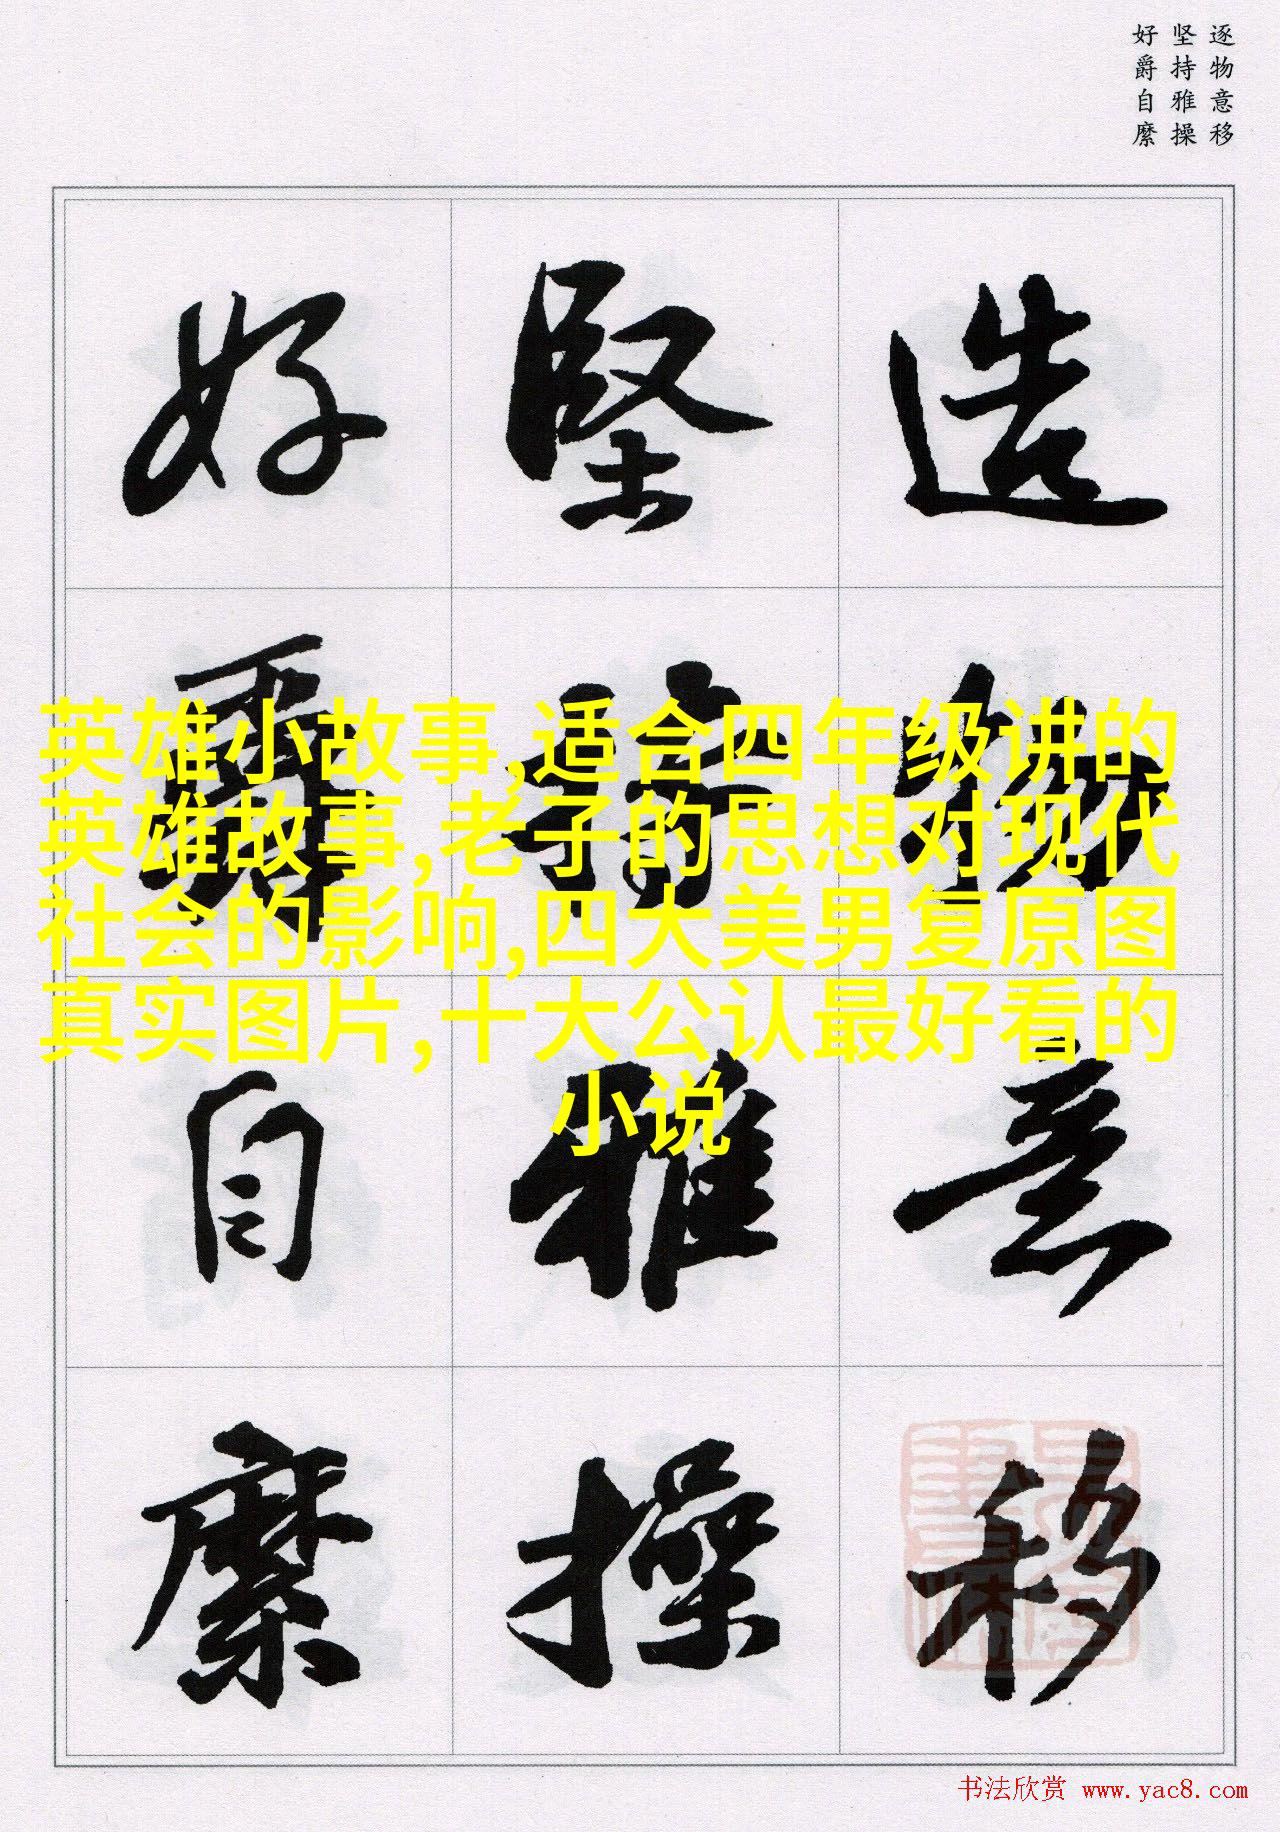 逐物意移
坚持雅操
好爵自縻
造物意移
堅持雅操
好爵自縻
英雄小故事,适合四年级讲的
英雄故事,老子的思想对现代
社会的影响,四大美男复原图
真实图片,十大公认最好看的
小说
书法欣赏 www.yac8.com